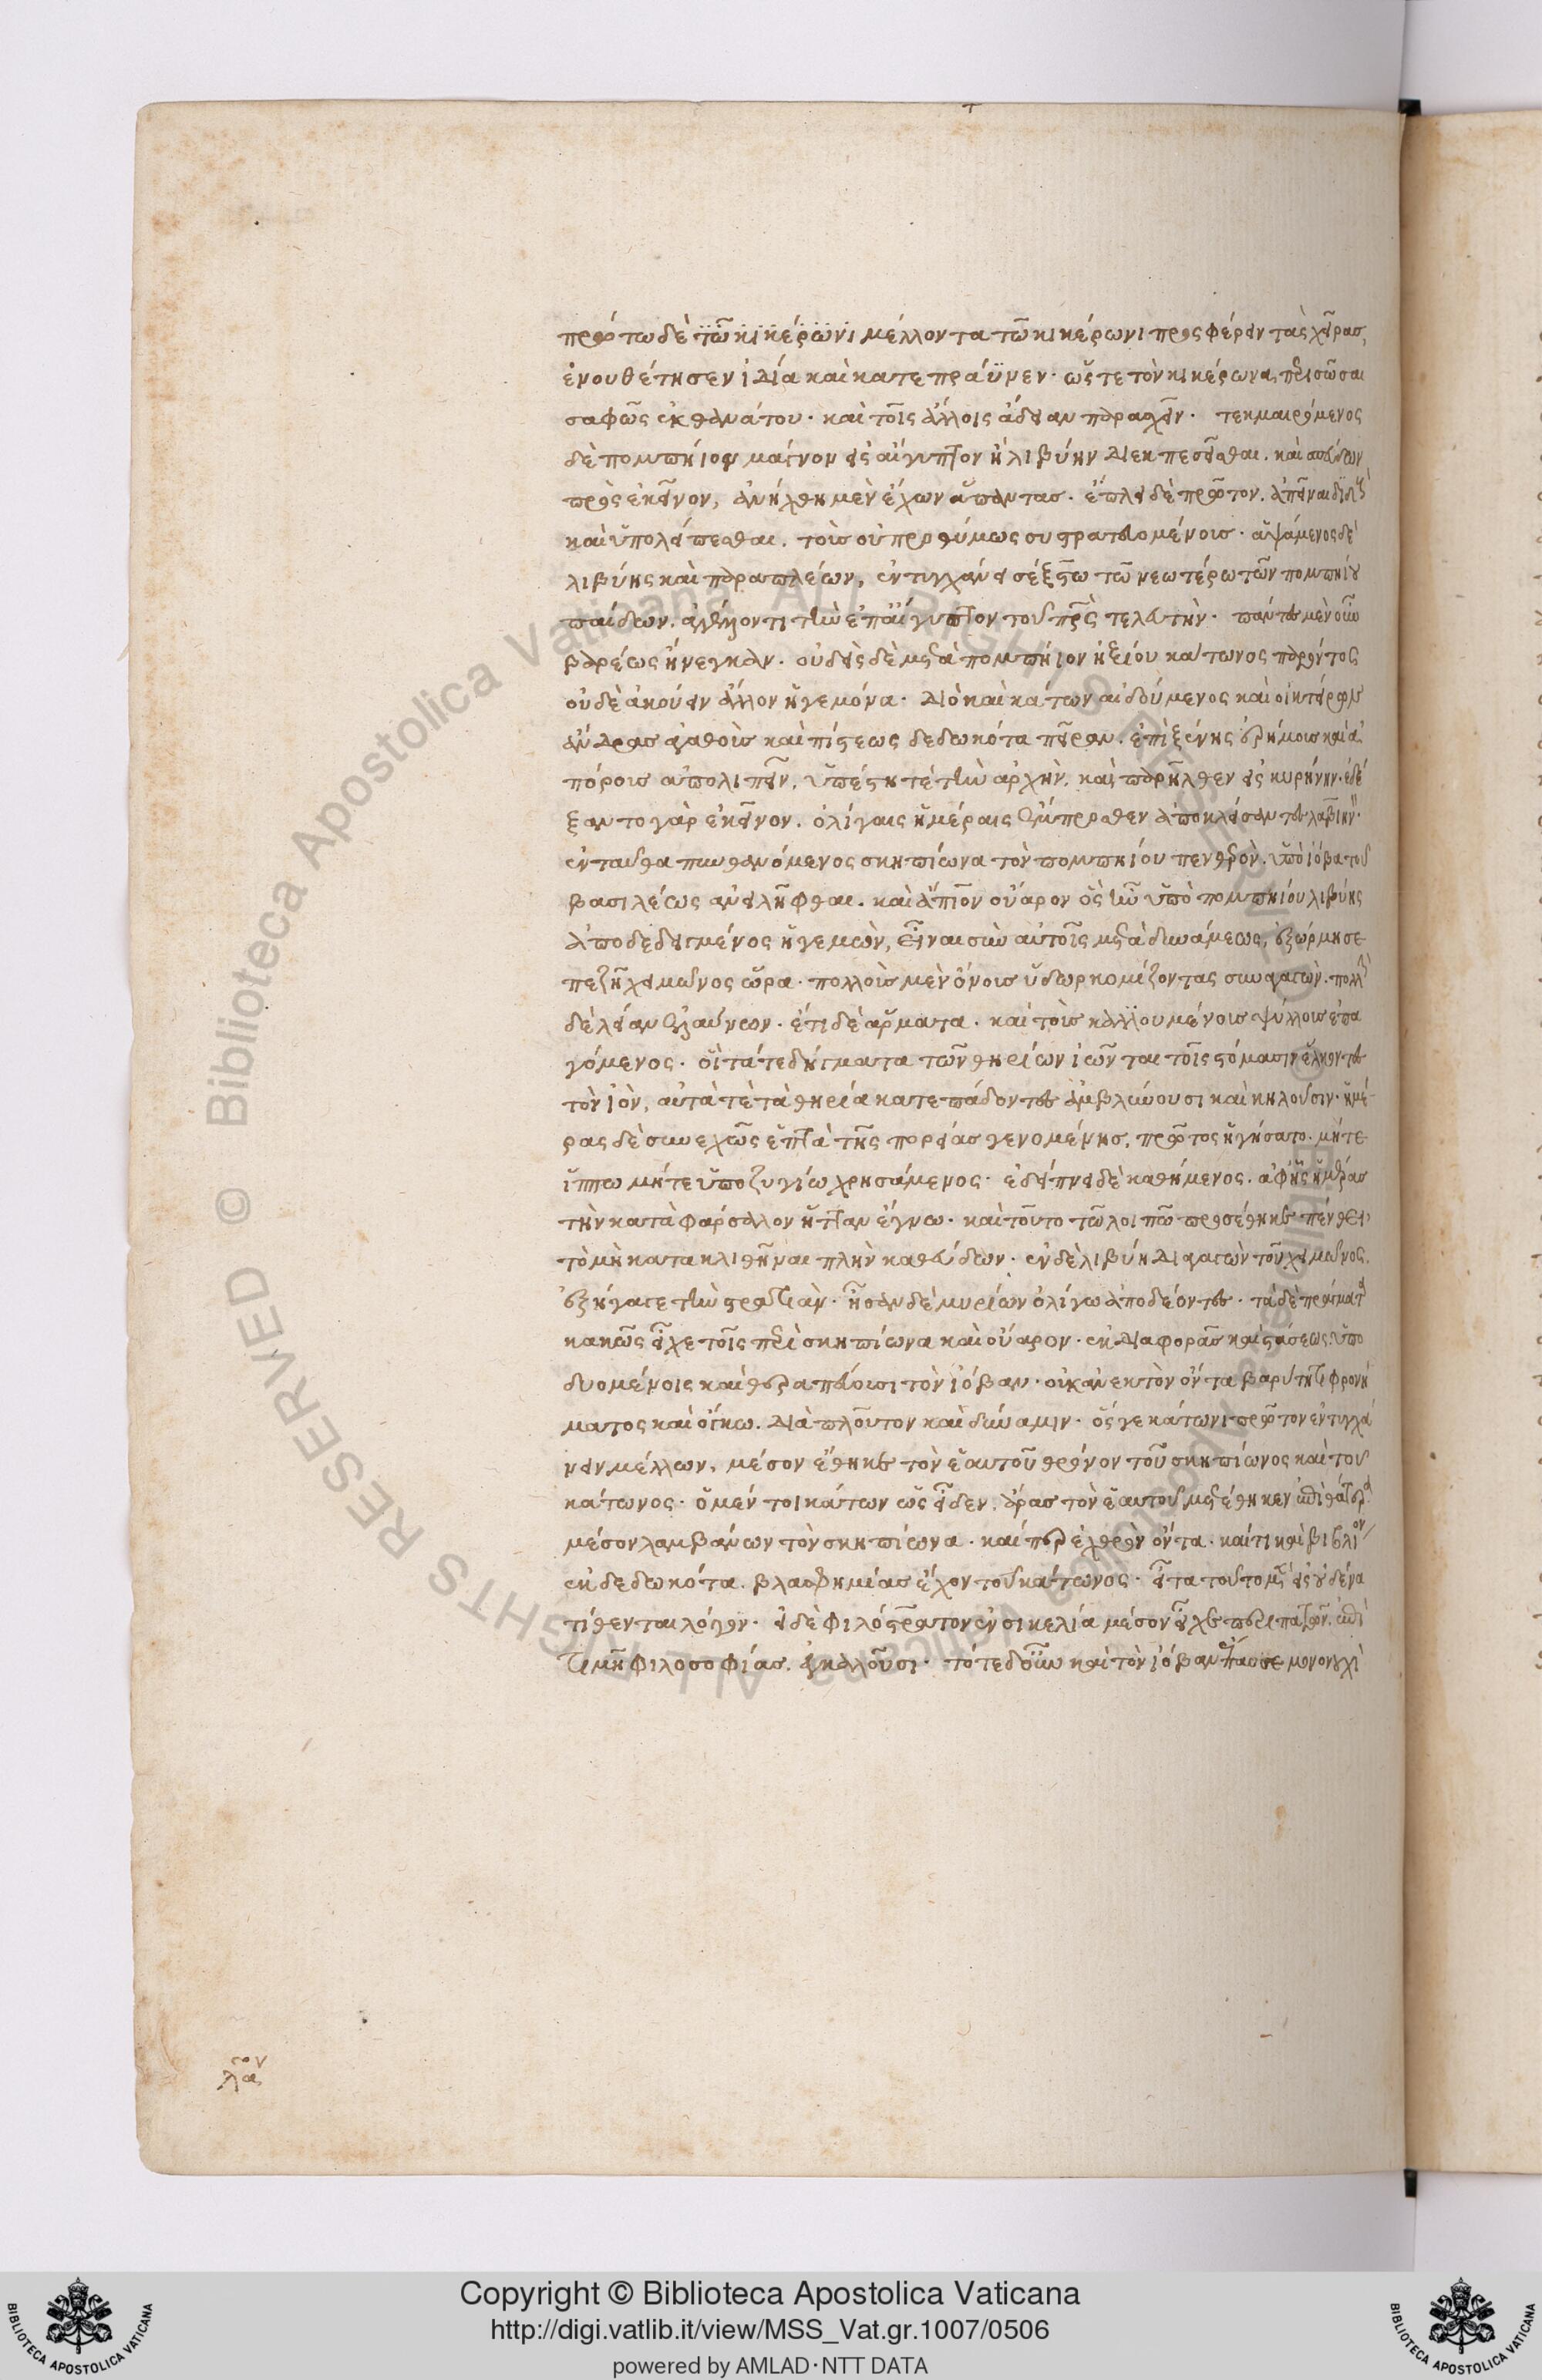 πρώτω δὲ τῶ κικέρωνι μέλλοντα τῶ κικέρωνι προσφέρειν τὰς χεῖρας,
ἐνουθέτησεν ἰδία καὶ κατεπράϋνεν· ὥστε τὸν κικέρωνα περισῶσαι
σαφῶς ἐκ θανάτου· καὶ τοῖς ἄλλοις ἄδειαν παρασχεῖν· τεκμαιρόμενος
δὲ πομπήιον μάγνον εἰς αἴγυπτον ἢ λιβύην διεκπεσεῖσθαι. καὶ σπεύδων
πρὸς ἐκεῖνον, ἀνήχθη μὲν ἔχων ἅπαντας· ἔπλει δὲ πρῶτον. ἀπεῖναι διδοὺς
καὶ ὑπολείπεσθαι. τοῖς οὐ προθύμως συστρατευομένοις· ἁψάμενος δὲ
λιβύης καὶ παραπλέων, ἐντυγχάνει σέξτω τῶ νεωτέρω τῶν πομπηίου
παίδων. ἀγγέλλοντι τὴν ἐπ' αἴγυπτον τοῦ πατρὸς τελευτὴν· πάντες μὲν οὖν
βαρέως ἤνεγκαν· οὐδεὶς δὲ μετὰ πομπήιον ἠξίου κάτωνος παρόντος
οὐδὲ ἀκούειν ἄλλον ἡγεμόνα· διὸ καὶ κάτων αἰδούμενος καὶ οἰκτείρων
ἄνδρας ἀγαθοὺς καὶ πίστεως δεδωκότα πεῖραν. ἐπὶ ξένης ἐρήμους καὶ ἀ
πόρους ἀπολιπεῖν, ὑπέστη τὲ τὴν ἀρχὴν, καὶ παρῆλθεν εἰς κυρήνην· ἐδέ
ξαντο γὰρ ἐκεῖνον. ὀλίγαις ἡμέραις ἔμπροσθεν ἀποκλείσαντες λαβιηνόν·
ἐνταῦθα πυνθανόμενος σκηπίωνα τὸν πομπηίου πενθερὸν. ὑπὸ ἰόβα τοῦ
βασιλέως ἀνειλῆφθαι. καὶ ἄπιον οὔαρον ὃς ἦν ὑπὸ πομπηίου λιβύης
ἀποδεδειγμένος ἡγεμὼν, εἶναι σὺν αὐτοῖς μετὰ δυνάμεως, ἐξώρμησε
πεζῆ χειμῶνος ὥρα· πολλοὺς μὲν ὄνους ὕδωρ κομίζοντας συναγαγὼν. πολλὴν
δὲ λείαν ἐλαύνων· ἔτι δὲ ἅρματα· καὶ τοὺς καλουμένους ψύλλους ἐπα
γόμενος· οἳ τά τε δήγματα τῶν θηρίων ἰῶνται τοῖς στόμασιν ἕλκοντες
τὸν ἰὸν, αὐτὰ τὲ τὰ θηρία κατεπάδοντες ἀμβλύνουσι καὶ κηλοῦσιν· ἡμέ
ρας δὲ συνεχῶς ἑπτὰ τῆς πορείας γενομένης, πρῶτος ἡγήσατο. μήτε
ἵππω μήτε ὑποζυγίω χρησάμενος· ἐδείπνει δὲ καθήμενος. ἀφ' ἧς ἡμέρας
τὴν κατὰ φάρσαλον ἧτταν ἔγνω· καὶ τοῦτο τῶ λοιπῶ προσέθηκε πένθει·
τὸ μὴ κατακλιθῆναι πλὴν καθεύδων· ἐν δὲ λιβύη διαγαγὼν τοῦ χειμῶνος.
ἐξήγαγε τὴν στρατιὰν· ἦσαν δὲ μυρίων ὀλίγω ἀποδέοντες· τὰ δὲ πράγματα
κακῶς εἶχε τοῖς περὶ σκηπίωνα καὶ οὔαρον· ἐκ διαφορᾶς καὶ στάσεως. ὑπο
δυομένοις καὶ θεραπεύουσι τὸν ἰόβαν· οὐκ ἀνεκτὸν ὄντα βαρύτητι φρονή
ματος καὶ ὄγκω. διὰ πλοῦτον καὶ δύναμιν· ὅς γε κάτωνι πρῶτον ἐντυγχά
νειν μέλλων, μέσον ἔθηκε τὸν ἑαυτοῦ θρόνον τοῦ σκηπίωνος καὶ τοῦ
κάτωνος· ὁ μέν τοι κάτων ὡς εἶδεν, ἄρας τὸν ἑαυτοῦ μετέθηκεν ἐπὶ θάτερα
μέσον λαμβάνων τὸν σκηπίωνα· καίπερ ἐχθρὸν ὄντα· καί τι καὶ βιβλίον
ἐκδεδωκότα. βλασφημίας ἔχον τοῦ κάτωνος· εἶτα τοῦτο μὲν εἰς οὐδένα
τίθενται λόγον· εἰ δὲ φιλόστρατον ἐν σικελία μέσον εἶχε περιπατῶν. ἐπὶ
τιμῆ φιλοσοφίας. ἐγκαλοῦσι· τότε δ' οὖν καὶ τὸν ἰόβαν ἔπαυσε μονονουχὶ
Copyright © Biblioteca Apostolica Vaticana
http://digi.vatlib.it/view/MSS_Vat.gr.1007/0506
powered by AMLAD·NTT DATA
BIBLIOTECA APOSTOLICA VATICANA
BIBLIOTECA APOSTOLICA VATICANA
© Biblioteca Apostolica Vaticana ALL RIGHTS RESERVED
© Biblioteca Apostolica Vaticana ALL RIGHTS RESERVED